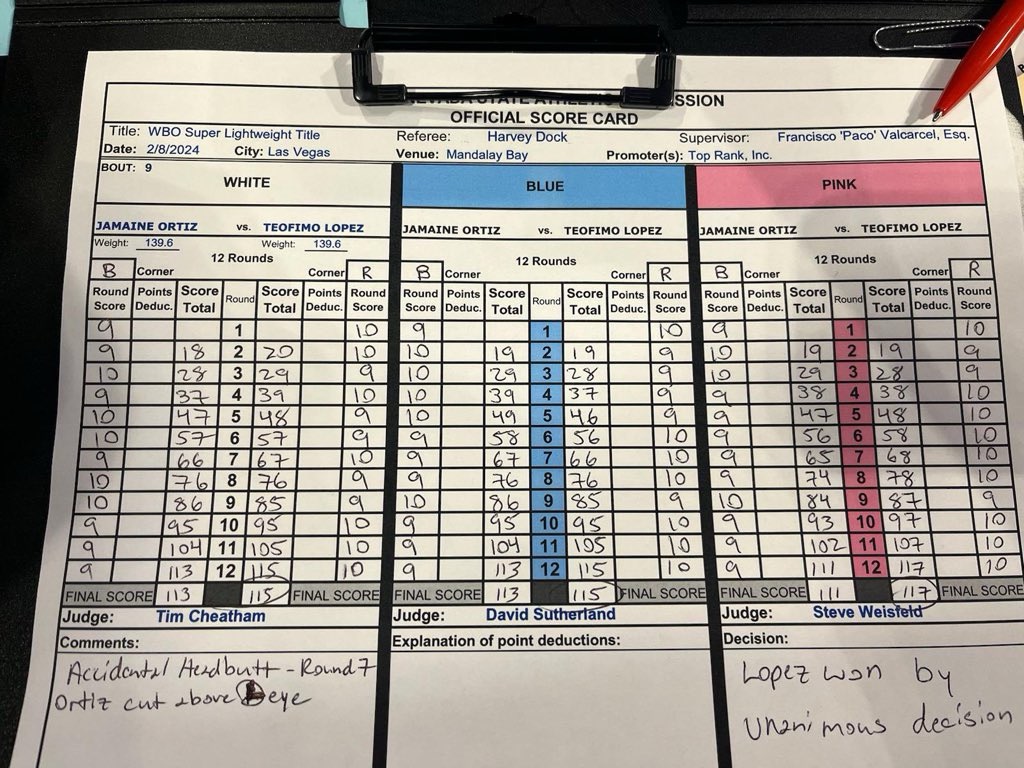 NEVADA STATE ATHLETIC COMMISSION
OFFICIAL SCORE CARD
Title: WBO Super Lightweight Title Referee: Harvey Dock Supervisor: Francisco 'Paco' Valcarcel, Esq.
Date: 2/8/2024 City: Las Vegas Venue: Mandalay Bay Promoter(s): Top Rank, Inc.
BOUT: 9
WHITE BLUE PINK
JAMAINE ORTIZ vs. TEOFIMO LOPEZ JAMAINE ORTIZ vs. TEOFIMO LOPEZ JAMAINE ORTIZ vs. TEOFIMO LOPEZ
Weight: 139.6 Weight: 139.6
12 Rounds 12 Rounds 12 Rounds
B Corner Corner R B Corner Corner R B Corner Corner R
Round Score Points Deduc. Score Total Round Score Total Points Deduc. Round Score Round Score Points Deduc. Score Total Round Score Total Points Deduc. Round Score Round Score Points Deduc. Score Total Round Score Total Points Deduc. Round Score
9 1 10 9 1 10 9 1 10
9 18 2 20 10 10 19 2 19 9 10 19 2 19 9
10 28 3 29 9 10 29 3 28 9 10 29 3 28 9
9 37 4 39 10 10 39 4 37 9 9 38 4 38 10
10 47 5 48 9 10 49 5 46 9 9 47 5 48 10
10 57 6 57 9 9 58 6 56 10 9 56 6 58 10
9 66 7 67 10 9 67 7 66 10 9 65 7 68 10
10 76 8 76 9 9 76 8 76 10 9 74 8 78 10
10 86 9 85 9 10 86 9 85 9 10 84 9 87 9
9 95 10 95 10 9 95 10 95 10 9 93 10 97 10
9 104 11 105 10 9 104 11 105 10 9 102 11 107 10
9 113 12 115 10 9 113 12 115 10 9 111 12 117 10
FINAL SCORE 113 115 FINAL SCORE FINAL SCORE 113 115 FINAL SCORE FINAL SCORE 111 117 FINAL SCORE
Judge: Tim Cheatham Judge: David Sutherland Judge: Steve Weisfeld
Comments: Explanation of point deductions: Decision:
Accidental Headbutt - Round 7
Ortiz cut above L eye
Lopez won by
Unanimous decision